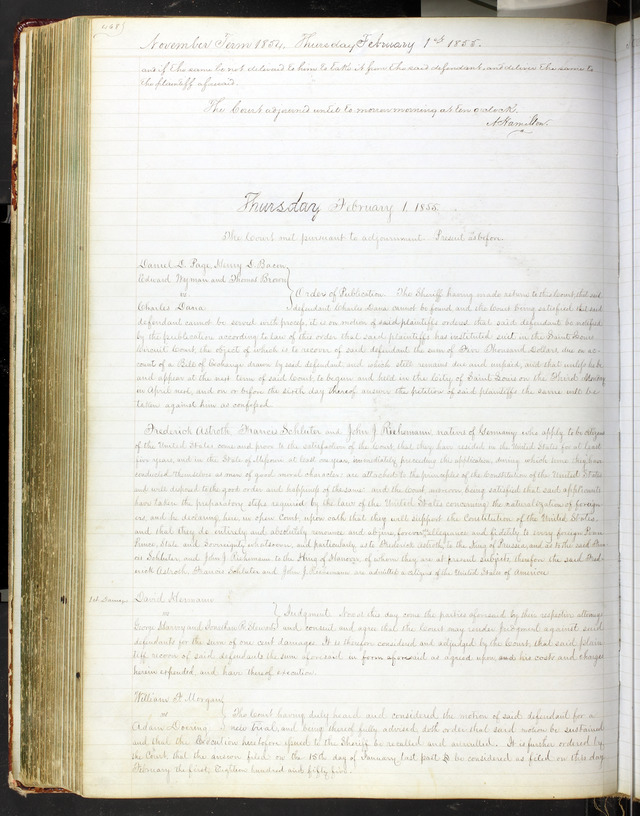 November Term 1854. Thursday February 1st 1855.
and if the same be not delivered to him to take it from the said defendant, and deliver the same to
the plaintiff aforesaid.
The Court adjourned until tomorrow morning at ten o'clock.
A. Hamilton
Thursday February 1, 1855
The Court met pursuant to adjournment. Present as before.
Daniel D. Page, Henry D. Bacon
Edward Wyman and Thomas Brown
vs Orders of Publication. The Sheriff having made return to this Court that said
Charles Dana defendant Charles Dana cannot be found and the Court being satisfied that said
defendant cannot be served with process, it is on motion of said plaintiffs ordered that said defendant be notified
by the publication according to law of this order that said plaintiffs has instituted suit in the Saint Louis
Circuit Court the object of which is to recover of said defendant the sum of Five Thousand Dollars due on ac-
count of a Bill of Exchange drawn by said defendant and which still remains due and unpaid, and that unless he be
and appear at the next term of said Court to begin and held in the City of Saint Louis on the Third Monday
in April next, and on or before the sixth day thereof answer the petition of said plaintiffs the same will be
taken against him as confessed.
Frederick Astroth, Francis Schluter and John J. natives of Germany who apply to be citizens
of the United States come and prove to the satisfaction of the Court, that they have resided in the United States for at least
five years, and in the State of Missouri at least one year, immediately preceding this application, during which time they have
conducted themselves as men of good moral character, are attached to the principles of the Constitution of the United States
and well disposed to the good order and happiness of the same: and the Court moreover being satisfied that said applicants
have taken the preparatory steps required by the laws of the United States concerning the naturalization of foreign-
ers, and he declaring here, in open Court, upon oath that they will support the Constitution of the United States,
and that they do entirely and absolutely renounce and abjure forever all allegiance and fidelity to every foreign Power,
Prince, State and Sovereignty whatsoever, and particularly, as to Frederick Astroth, to the King of Prussia, and as to the said Fran-
cis Schluter and John J. to the King of Hanover of whom they are at present subjects, therefore the said Fred-
erick Astroth, Francis Schluter and John J. are admitted a citizens of the United States of America.
David
vs Judgment. Now at this day come the parties aforesaid by their respective attorneys
George and Jonathan R. and consent and agree that the Court may render judgment against said
defendants for the sum of one cent damages. It is therefore considered and adjudged by the Court, that said plain-
tiff recover of said defendants the sum aforesaid in form aforesaid as agreed upon, and his costs and charges
herein expended, and have thereof execution.
William D. Morgan
vs The Court having duly heard and considered the motion of said defendant for a
Adam new trial, and being thereof fully advised doth order that said motion be sustained
and that the Execution heretofore issued to the Sheriff be recalled and annulled. It is further ordered by
the Court that the answer filed on the 15th day of January last past be considered as filed on this day
February the first, Eighteen hundred and fifty five.